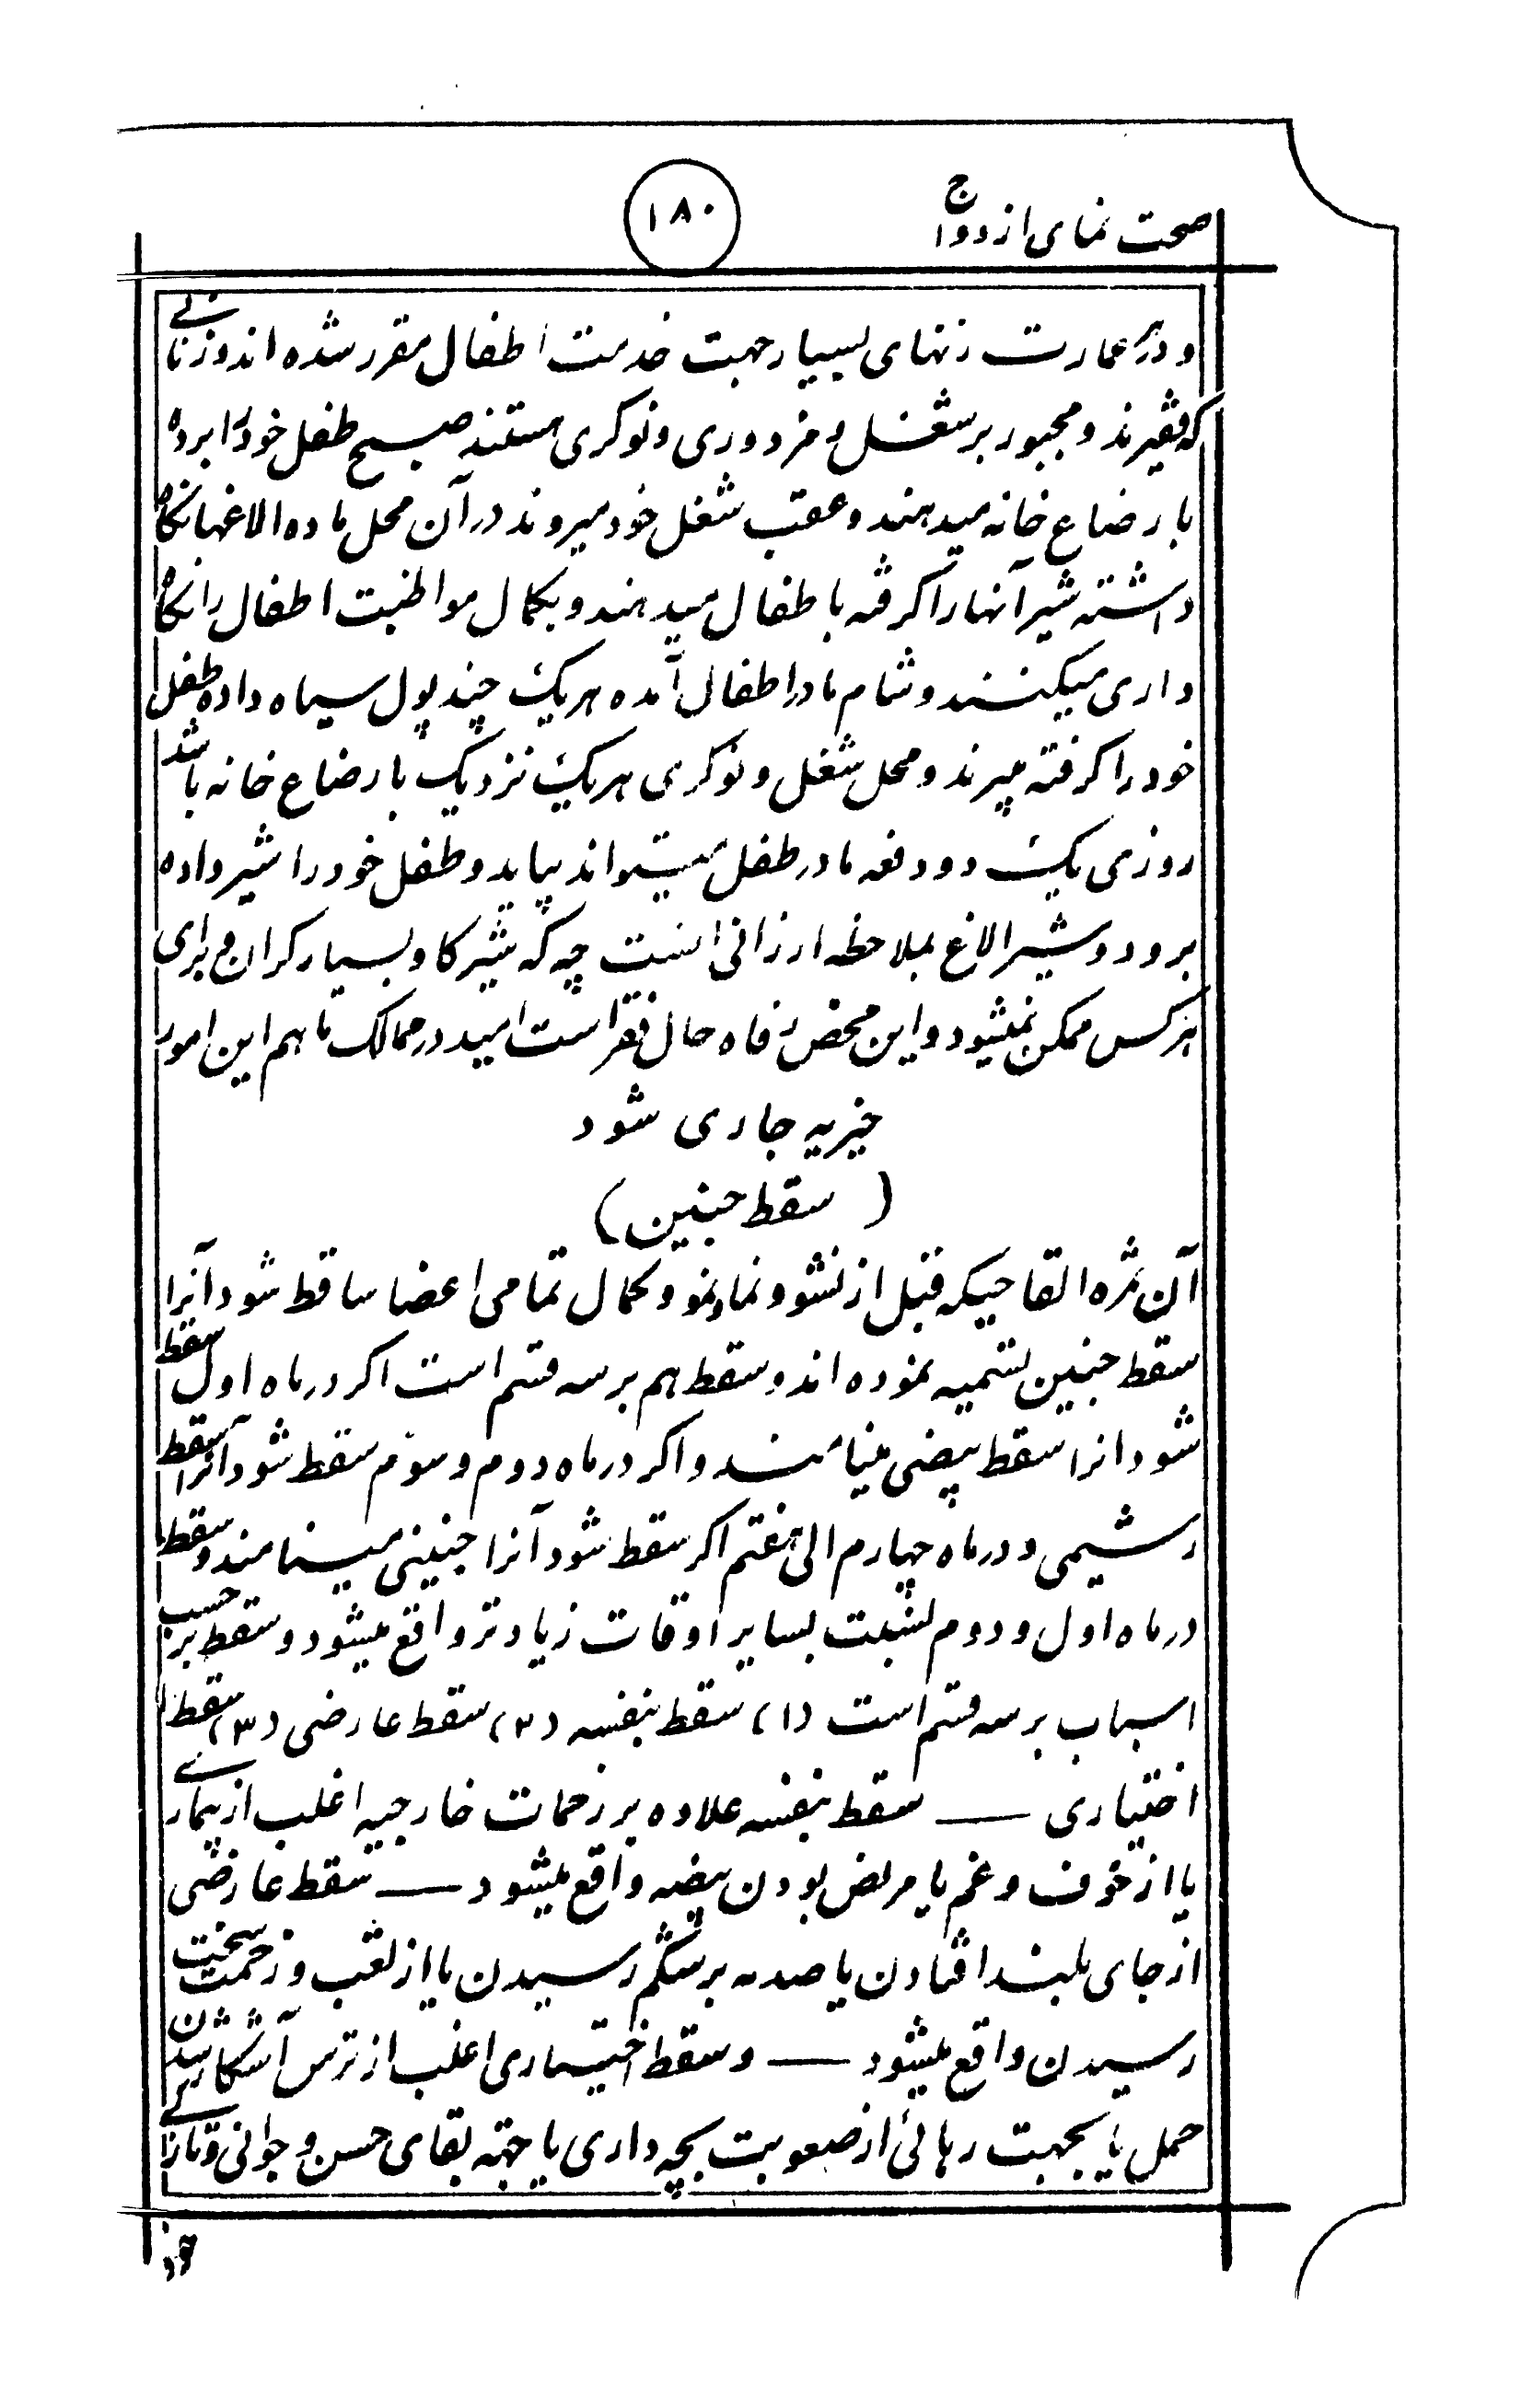 صحت نمای ازدواج
۱۸۰
و در هر عمارت زنهای بسیار جهت خدمت اطفال مقرر شده اند و زنانی
که فقیرند و مجبور بر شغل و مزدوری و نوکری هستند صبح طفل خود را برده
بارضاع خانه میدهند و عقب شغل خود میروند در آن محل ماده الاغها نکاه
داشته شیر آنها را کرفته باطفال میدهند و بکمال مواظبت اطفال را نکاه
داری میکنند و شام مادر اطفال آمده هریک چند پول سیاه داده طفل
خود را کرفته میبرند و محل شغل و نوکری هریک نزدیک بارضاع خانه باشد
روزی یک دو دفعه مادر طفل میتواند بیاید و طفل خود را شیر داده
برود و شیر الاغ بملاحظه ارزانی است چه که شیر کاو بسیار کران و برای
هر کس ممکن نمیشود و این محض رفاه حال فقرا است امید در ممالک ما هم این امور
خیریه جاری شود
( سقط جنین )
آن ثمره القاحیکه قبل از نشو و نما و نمو و کمال تمامی اعضا ساقط شود آنرا
سقط جنین تسمیه نموده اند و سقط هم بر سه قسم است اکر در ماه اول سقط
شود انرا سقط بیضی مینامند و اکر در ماه دوم و سوم سقط شود آنرا سقط
رشیمی و در ماه چهارم الی هفتم اکر سقط شود آنرا جنینی مینامند و سقط
در ماه اول و دوم نسبت بسایر اوقات زیادتر واقع میشود و سقط بر حسب
اسباب بر سه قسم است (۱) سقط بنفسه (۲) سقط عارضی (۳) سقط
اختیاری — سقط بنفسه علاوه بر زحمات خارجیه اغلب از بیماری
یا از خوف و غم یا مریض بودن بیضه واقع میشود — سقط عارضی
از جای بلند افتادن یا صدمه بر شکم رسیدن یا از تعب و زحمت سخت
رسیدن واقع میشود — و سقط اختیاری اغلب از ترس آشکار شدن
حمل یا بجهت رهائی از صعوبت بچه داری یا جهته بقای حسن و جوانی و تازکی